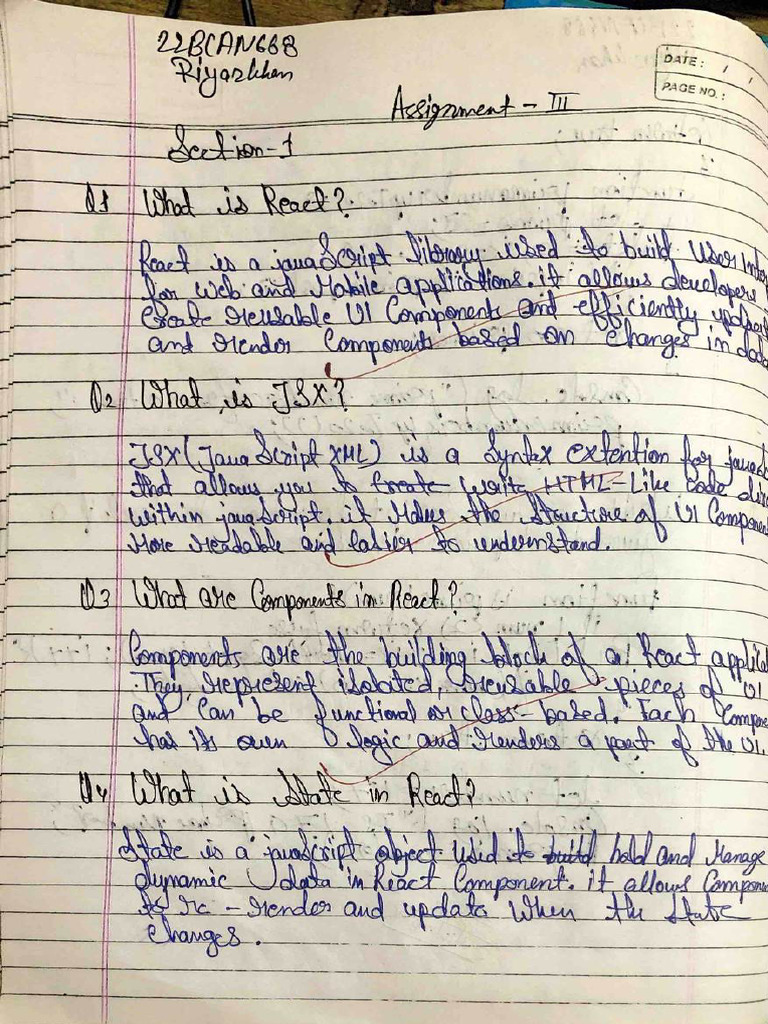 22BCAN668
Riyazkhan
DATE: / /
PAGE NO.:
Assignment - III
Section-1
Q1 What is React?
React is a javaScript library used to build User Inte
for web and Mobile applications. it allows developers
Create reusable UI Components and efficiently update
and render Components based on changes in data
Q2 What is JSX?
JSX (JavaScript XML) is a Syntax extention for javas
that allows you to Create write HTML-Like code dire
within javaScript. it Makes the Structure of UI Component
More readable and Easier to undernstand.
Q3 What are Components in React?
Components are the building block of a React applica
They represent isolated, reusable pieces of UI
and Can be functional or class-based. Each Compone
has its own logic and renders a part of the UI.
Q4 What is State in React?
State is a javascript object Usid to build hold and Manage
dynamic data in React Component. it allows Compone
to re-render and update When the State
Changes.